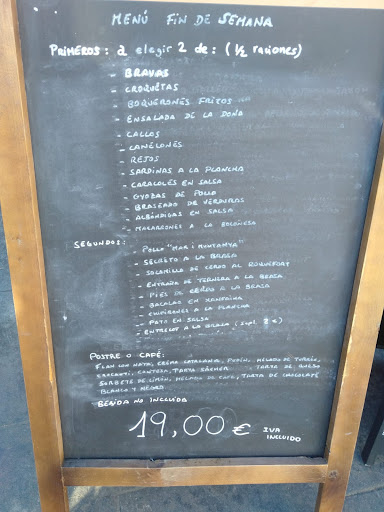 MENÚ FIN DE SEMANA
PRIMEROS: a elegir 2 de: (½ raciones)
- BRAVAS
- CROQUETAS
- BOQUERONES FRITOS
- ENSALADA DE LA DOÑA
- CALLOS
- CANELONES
- REJOS
- SARDINAS A LA PLANCHA
- CARACOLES EN SALSA
- GYOZAS DE POLLO
- BRASEADO DE VERDURAS
- ALBÓNDIGAS EN SALSA
- MACARRONES A LA BOLOÑESA
SEGUNDOS: - POLLO "MAR I MUNTANYA"
- SECRETO A LA BRASA
- SOLOMILLO DE CERDO AL ROQUEFORT
- ENTRAÑA DE TERNERA A LA BRASA
- PIES DE CERDO A LA BRASA
- BACALAO EN SANFAINA
- CHIPIRONES A LA PLANCHA
- PATO EN SALSA
- ENTRECOT A LA BRASA (supl. 8 €)
POSTRE O CAFÉ:
FLAN CON NATA, CREMA CATALANA, PUDIN, HELADO DE TURRÓN,
CROCANTI, CONTESA, TARTA SÁCHER TARTA DE QUESO
SORBETE DE LIMÓN, HELADO DE CAFÉ, TARTA DE CHOCOLATE
BLANCO Y NEGRO
BEBIDA NO INCLUIDA
19,00 € IVA
INCLUIDO